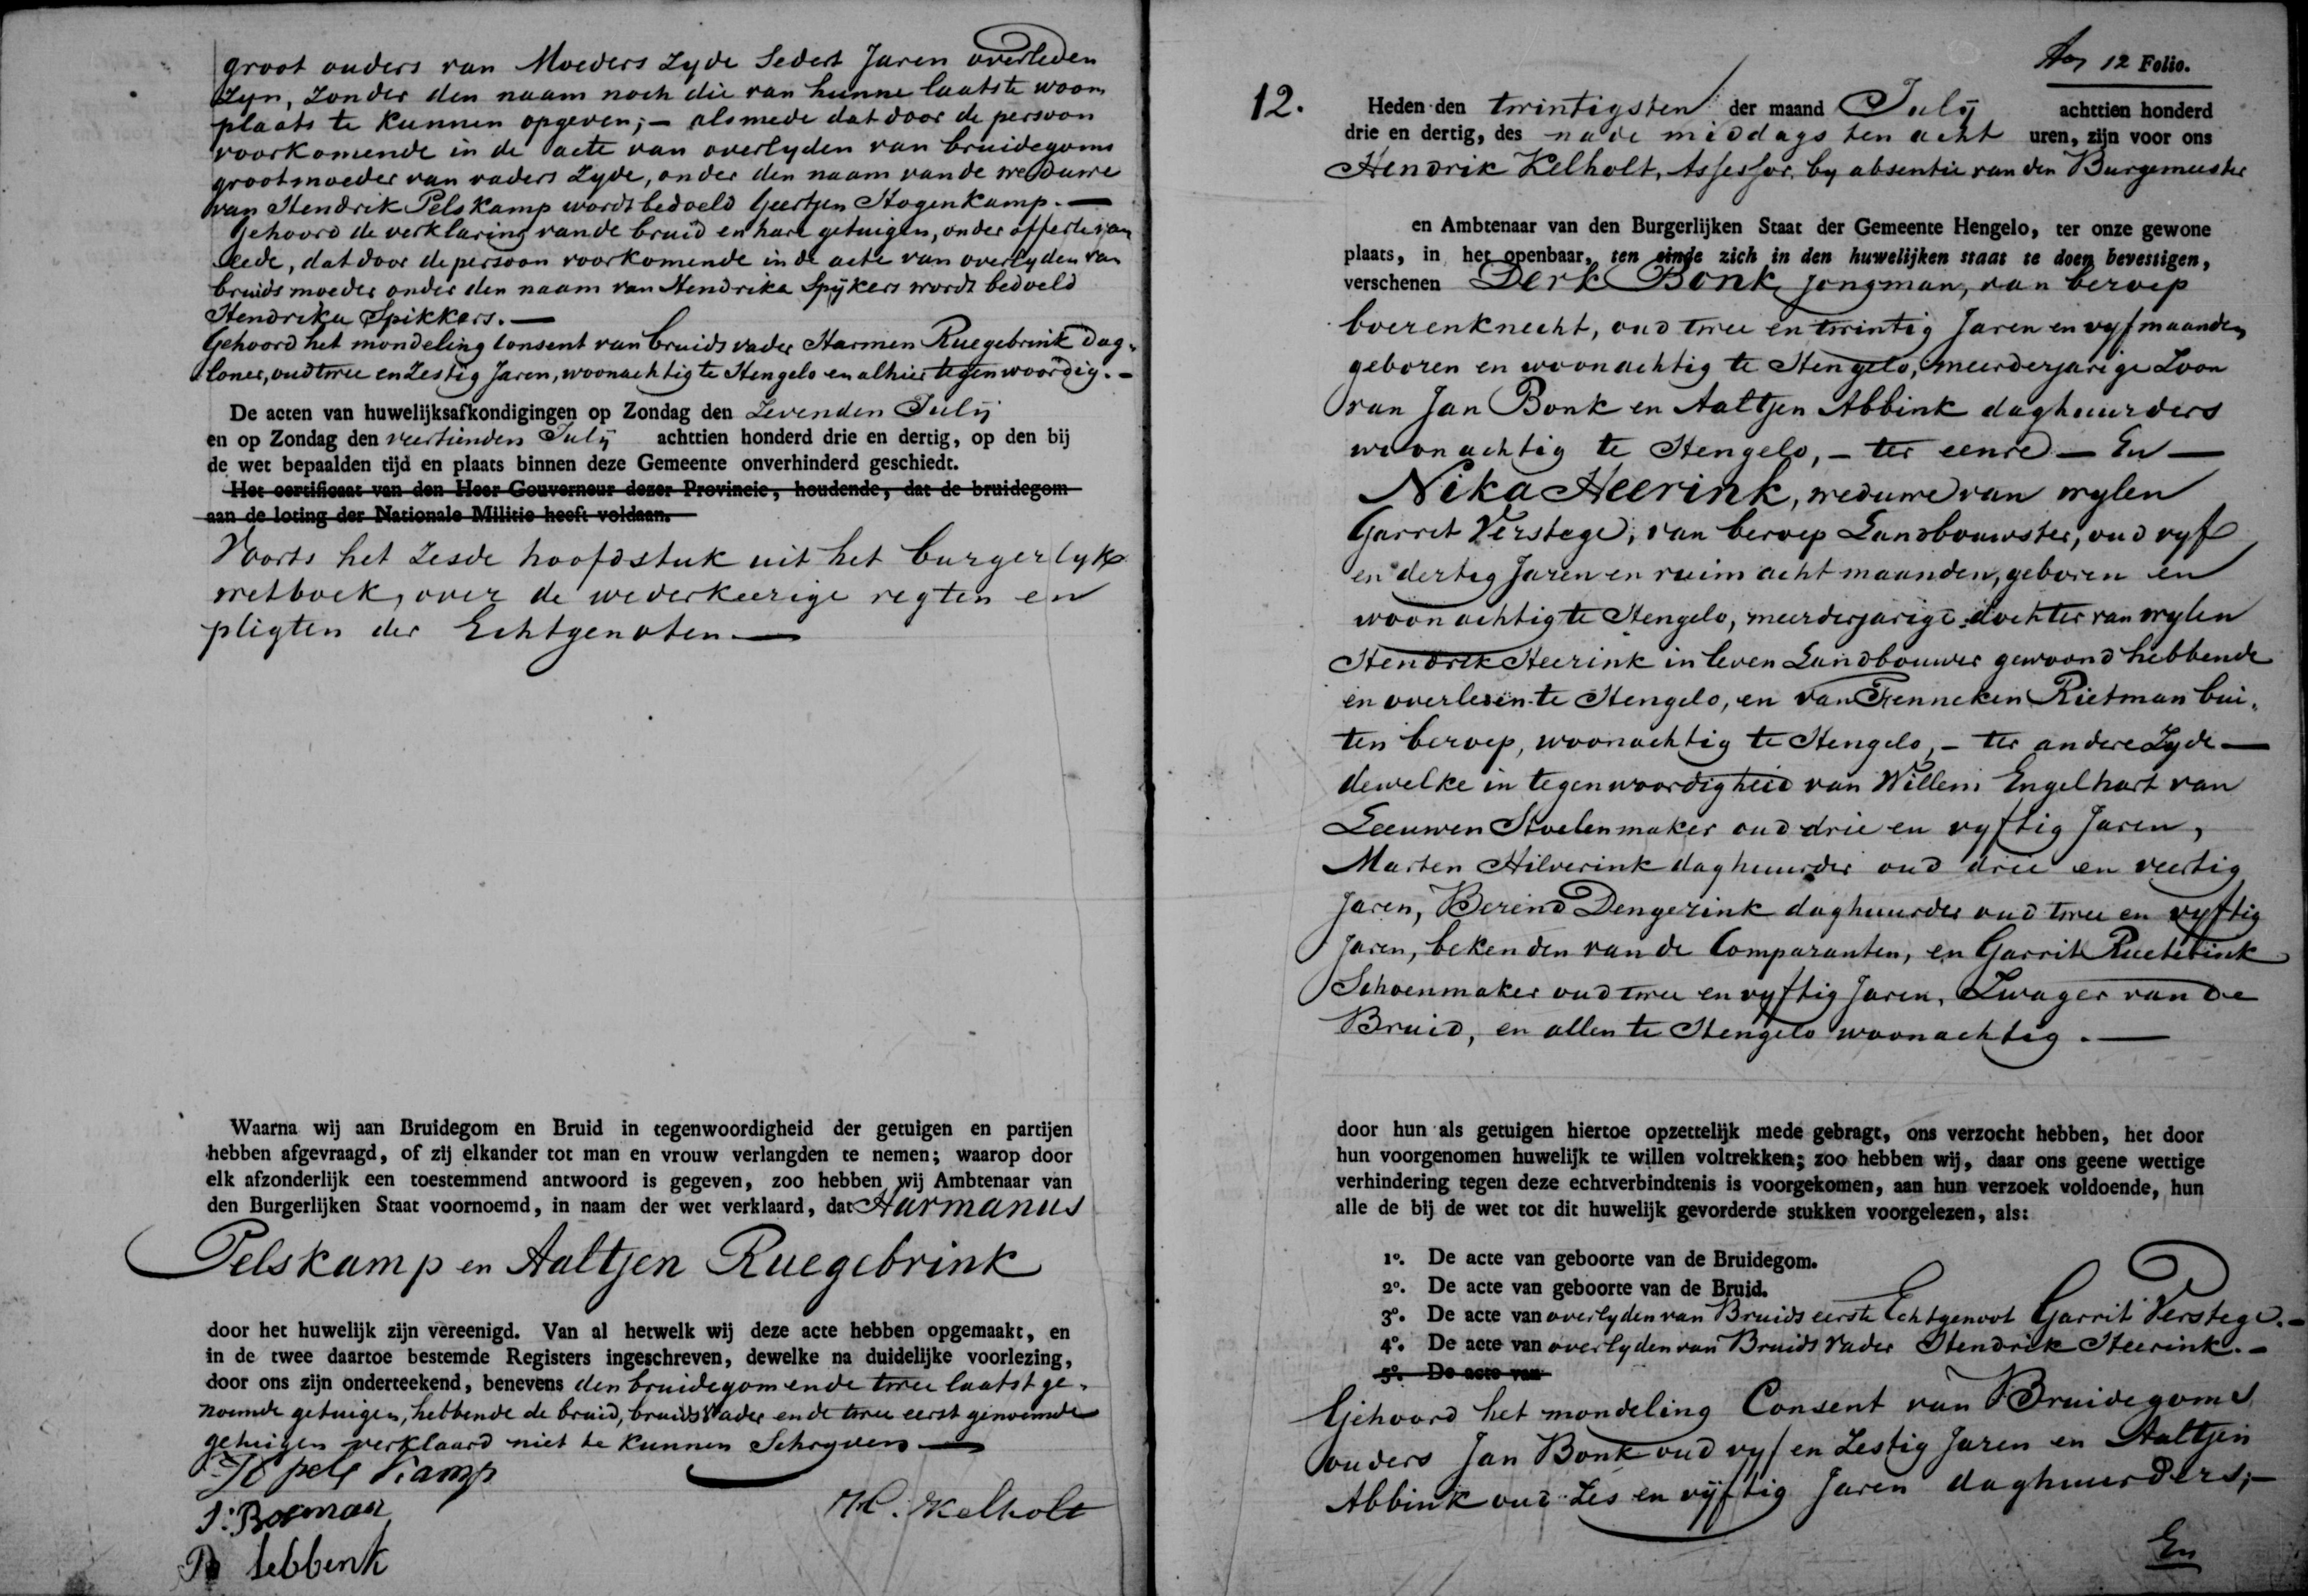 groot ouders van Moeders Zyde Sedert Jaren overleden
Zyn, Zonder den naam noch die van hunne laatste woon
plaats te kunnen opgeven; — alsmede dat door de persoon
voorkomende in de acte van overlyden van bruidegoms
grootmoeder van vaders Zyde, onder den naam van de weduwe
van Hendrik Pelskamp wordt bedoeld Geertjen Hogenkamp. —
Gehoord de verklaring van de bruid en hare getuigen, onder offerte van
Eede, dat door de persoon voorkomende in de acte van overlyden van
bruids moeder onder den naam van Hendrika Spÿkers wordt bedoeld
Hendrika Spikkers. —
Gehoord het mondeling Consent van bruids vader Harmen Ruegebrink dag-
loner, oud twee en Zestig Jaren, woonachtig te Hengelo en alhier tegenwoordig. —
De acten van huwelijksafkondigingen op Zondag den Zevenden Julÿ
en op Zondag den veertienden Julÿ achttien honderd drie en dertig, op den bij
de wet bepaalden tijd en plaats binnen deze Gemeente onverhinderd geschiedt.
Het certificaat van den Heer Gouverneur dezer Provincie, houdende, dat de bruidegom
aan de loting der Nationale Militie heeft voldaan.
Voorts het Zesde hoofdstuk uit het burgerlyk
wetboek, over de wederkeerige regten en
pligten der Echtgenoten —
Waarna wij aan Bruidegom en Bruid in tegenwoordigheid der getuigen en partijen
hebben afgevraagd, of zij elkander tot man en vrouw verlangden te nemen; waarop door
elk afzonderlijk een toestemmend antwoord is gegeven, zoo hebben wij Ambtenaar van
den Burgerlijken Staat voornoemd, in naam der wet verklaard, dat Harmanus
Pelskamp en Aaltjen Ruegebrink
door het huwelijk zijn vereenigd. Van al hetwelk wij deze acte hebben opgemaakt, en
in de twee daartoe bestemde Registers ingeschreven, dewelke na duidelijke voorlezing,
door ons zijn onderteekend, benevens den bruidegom ende twee laatst ge-
noemde getuigen, hebbende de bruid, bruids vader en de twee eerst genoemde
getuigen verklaard niet te kunnen Schryven —
H pels kamp
H. Kelholt
J. Bosman
lebbenk
12 Folio.
12.
Heden den twintigsten der maand Julÿ achttien honderd
drie en dertig, des nade middags ten acht uren, zijn voor ons
Hendrik Kelholt, Assessor, by absentie van den Burgemeester
en Ambtenaar van den Burgerlijken Staat der Gemeente Hengelo, ter onze gewone
plaats, in het openbaar, ten einde zich in den huwelijken staat te doen bevestigen,
verschenen Derk Bonk, jongman, van beroep
boerenknecht, oud twee en twintig Jaren en vyf maanden
geboren en woonachtig te Hengelo, meerderjarige Zoon
van Jan Bonk en Aaltjen Abbink daghuurders
woonachtig te Hengelo, — ter eenre — En —
Nika Heerink, weduwe van wylen
Garrit Verstege, van beroep Landbouwster, oud vyf
en dertig Jaren en ruim acht maanden, geboren en
woonachtig te Hengelo, meerderjarige dochter van wylen
Hendrik Heerink in leven Landbouwer gewoond hebbende
en overleden te Hengelo, en van Fenneken Rietman bui-
ten beroep, woonachtig te Hengelo, — ter andere Zyde —
dewelke in tegenwoordigheid van Willem Engelhart van
Leeuwen Stoelenmaker oud drie en vyftig Jaren,
Marten Hilverink daghuurder oud drie en veertig
Jaren, Berend Dengerink daghuurder oud twee en vyftig
Jaren, bekenden van de Comparanten, en Garrit
Schoenmaker oud twee en vyftig Jaren, Zwager van de
Bruid, en allen te Hengelo woonachtig. —
door hun als getuigen hiertoe opzettelijk mede gebragt, ons verzocht hebben, het door
hun voorgenomen huwelijk te willen voltrekken; zoo hebben wij, daar ons geene wettige
verhindering tegen deze echtverbindtenis is voorgekomen, aan hun verzoek voldoende, hun
alle de bij de wet tot dit huwelijk gevorderde stukken voorgelezen, als:
1o. De acte van geboorte van de Bruidegom.
2o. De acte van geboorte van de Bruid.
3o. De acte van overlyden van Bruids eerste Echtgenoot Garrit Verstege. —
4o. De acte van overlyden van Bruids Vader Hendrik Heerink. —
5o. De acte van
Gehoord het mondeling Consent van Bruidegoms
ouders Jan Bonk oud vyf en Zestig Jaren en Aaltjen
Abbink oud Zes en vÿftig Jaren daghuurders; —
En